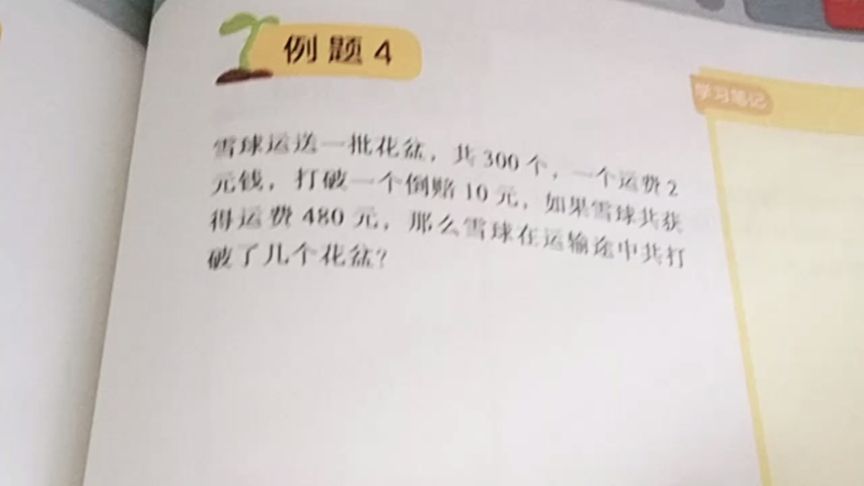 例题4
学习笔记
雪球运送一批花盆，共300个，一个运费2
元钱，打破一个倒赔10元，如果雪球共获
得运费480元，那么雪球在运输途中共打
破了几个花盆？